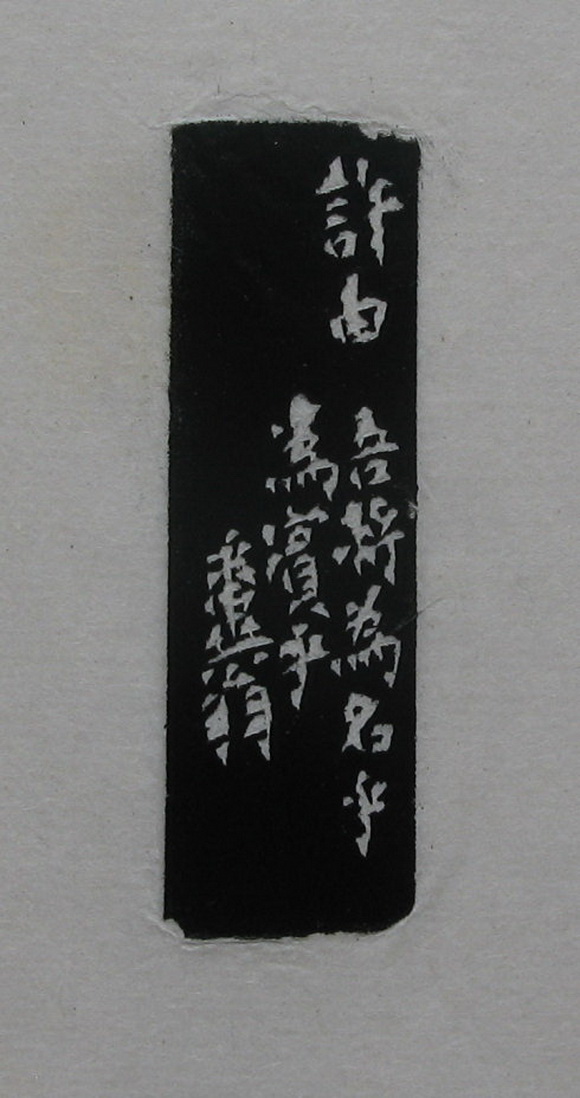 許由 吾將為名乎
為賓乎
翁